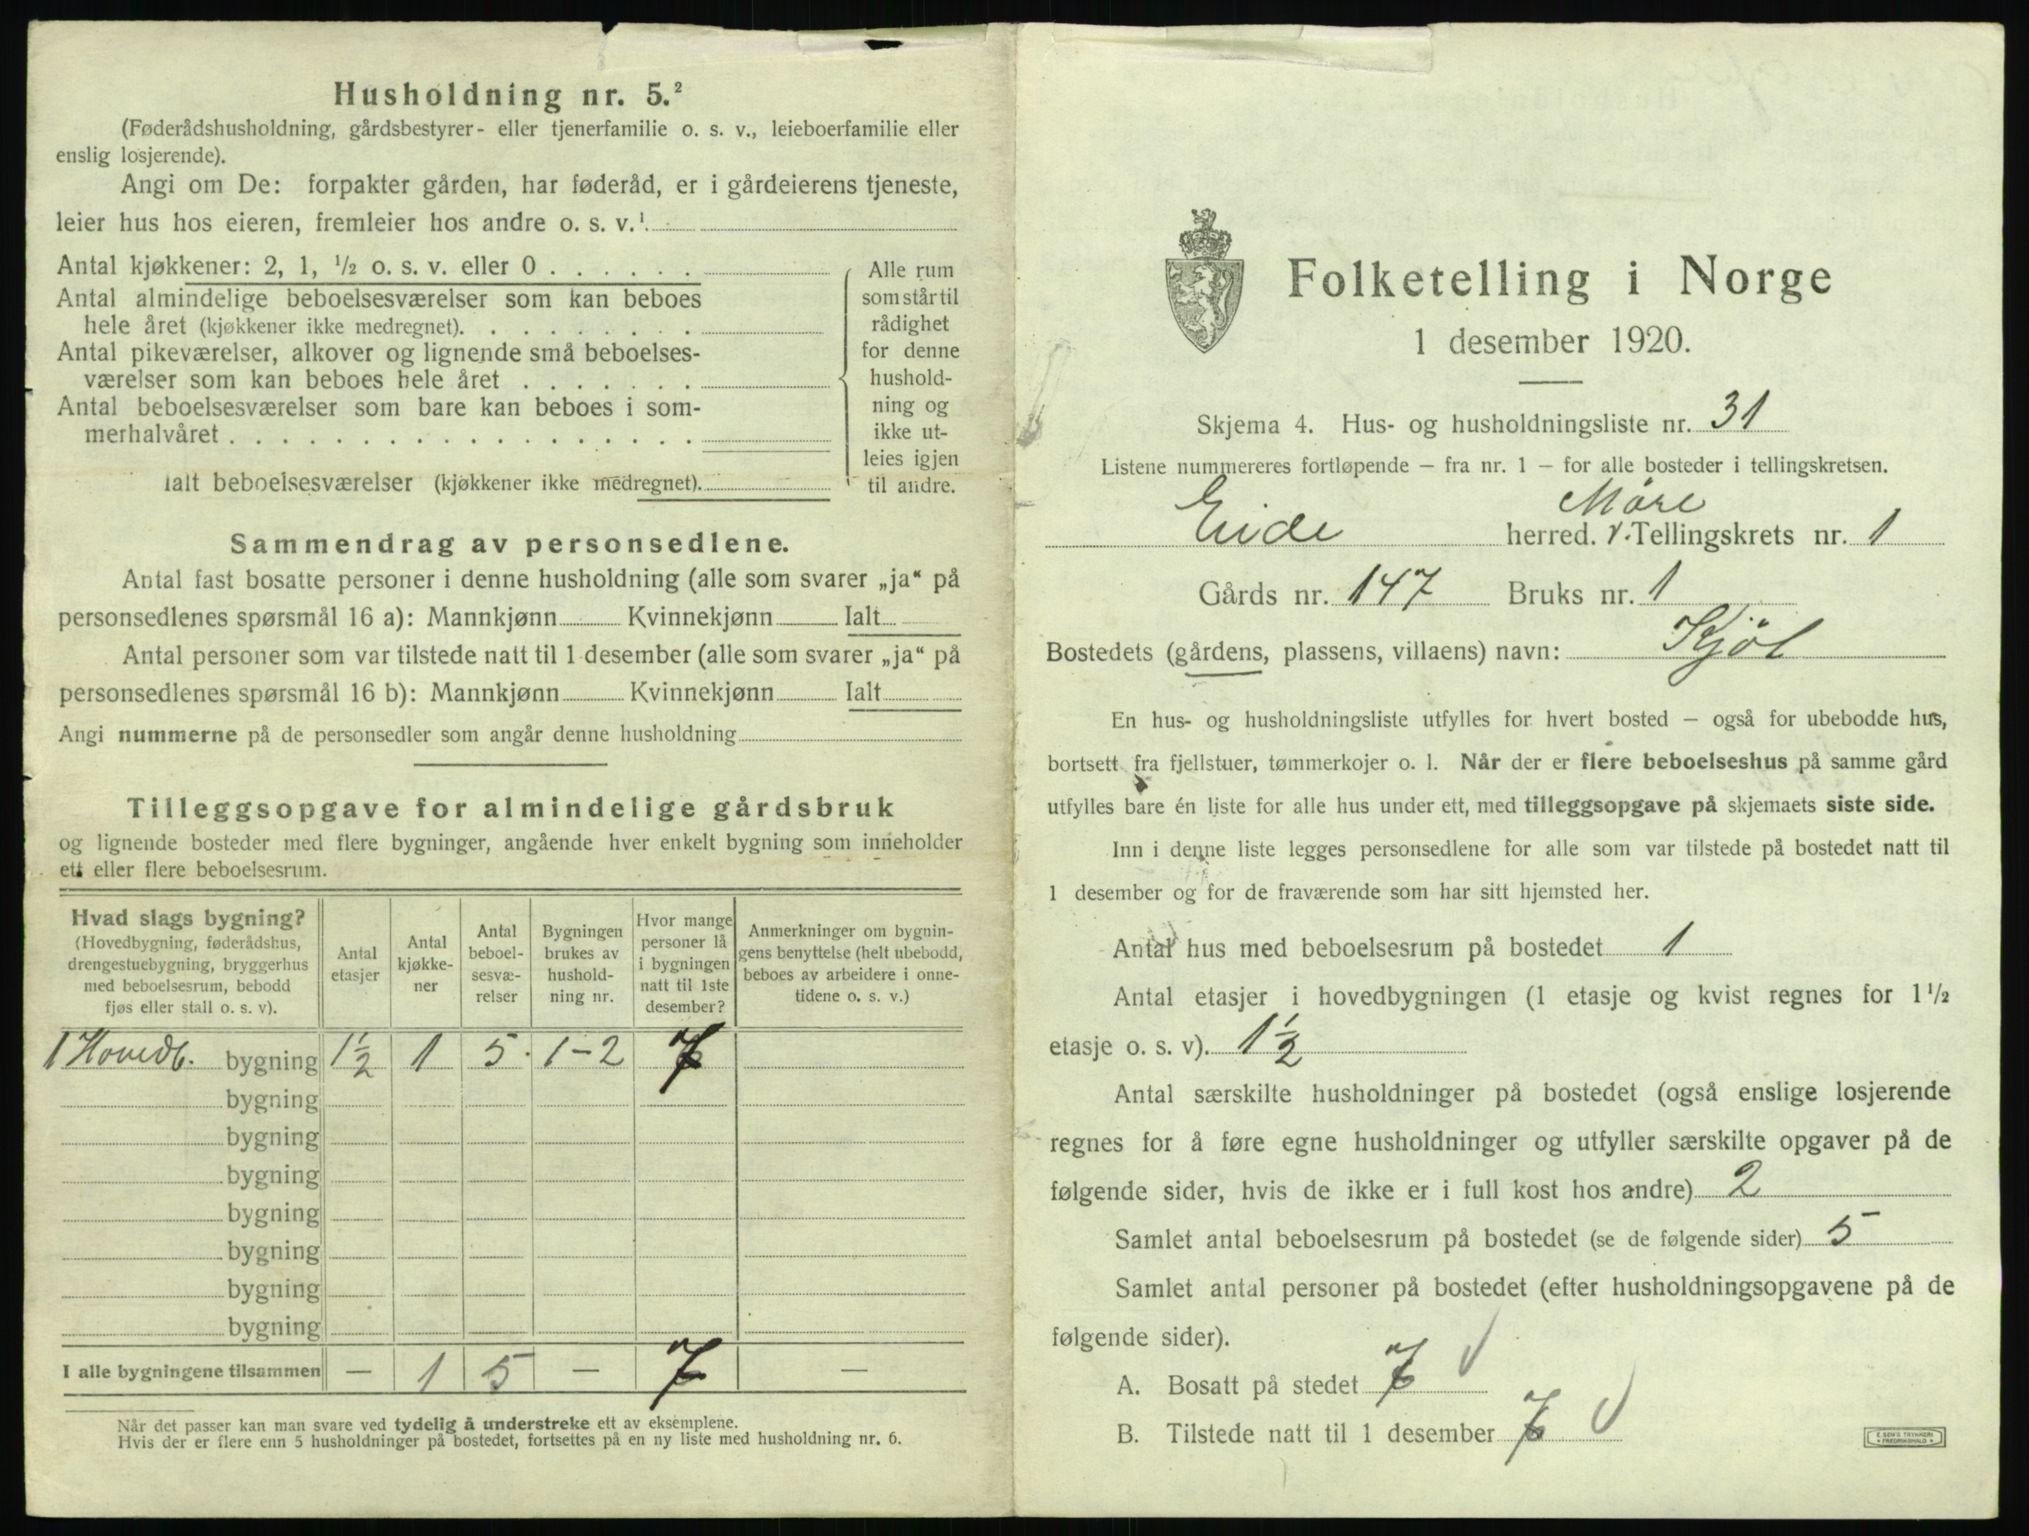 Husholdning nr. 5.²
(Føderådshusholdning, gårdsbestyrer- eller tjenerfamilie o. s. v., leieboerfamilie eller
enslig losjerende).
Angi om De: forpakter gården, har føderåd, er i gårdeierens tjeneste,
leier hus hos eieren, fremleier hos andre o. s. v.¹
Antal kjøkkener: 2, 1, ½ o. s. v. eller 0
Antal almindelige beboelsesværelser som kan beboes
hele året (kjøkkener ikke medregnet).
Antal pikeværelser, alkover og lignende små beboelses-
værelser som kan beboes hele året
Antal beboelsesværelser som bare kan beboes i som-
merhalvåret
Ialt beboelsesværelser (kjøkkener ikke medregnet).
Alle rum
som står til
rådighet
for denne
hushold-
ning og
ikke ut-
leies igjen
til andre.
Sammendrag av personsedlene.
Antal fast bosatte personer i denne husholdning (alle som svarer „ja“ på
personsedlenes spørsmål 16 a): Mannkjønn Kvinnekjønn Ialt
Antal personer som var tilstede natt til 1 desember (alle som svarer „ja“ på
personsedlenes spørsmål 16 b): Mannkjønn Kvinnekjønn Ialt
Angi nummerne på de personsedler som angår denne husholdning
Tilleggsopgave for almindelige gårdsbruk
og lignende bosteder med flere bygninger, angående hver enkelt bygning som inneholder
ett eller flere beboelsesrum.
Hvad slags bygning?
(Hovedbygning, føderådshus,
drengestuebygning, bryggerhus
med beboelsesrum, bebodd
fjøs eller stall o. s. v).
Antal
etasjer
Antal
kjøkke-
ner
Antal
beboel-
sesvæ-
relser
Bygningen
brukes av
hushold-
ning nr.
Hvor mange
personer lå
i bygningen
natt til 1ste
desember?
Anmerkninger om bygnin-
gens benyttelse (helt ubebodd,
beboes av arbeidere i onne-
tidene o. s. v.)
1 Hovedb. bygning 1½ 1 5 1-2 7
bygning
bygning
bygning
bygning
bygning
bygning
bygning
I alle bygningene tilsammen — 1 5 — 7 —
Når det passer kan man svare ved tydelig å understreke ett av eksemplene.
Hvis der er flere enn 5 husholdninger på bostedet, fortsettes på en ny liste med husholdning nr. 6.
Folketelling i Norge
1 desember 1920.
Skjema 4. Hus- og husholdningsliste nr. 31
Listene nummereres fortløpende – fra nr. 1 – for alle bosteder i tellingskretsen.
Møre
Eide herred. Tellingskrets nr. 1
Gårds nr. 147 Bruks nr. 1
Bostedets (gårdens, plassens, villaens) navn: Kjøl
En hus- og husholdningsliste utfylles for hvert bosted – også for ubebodde hus,
bortsett fra fjellstuer, tømmerkojer o. l. Når der er flere beboelseshus på samme gård
utfylles bare én liste for alle hus under ett, med tilleggsopgave på skjemaets siste side.
Inn i denne liste legges personsedlene for alle som var tilstede på bostedet natt til
1 desember og for de fraværende som har sitt hjemsted her.
Antal hus med beboelsesrum på bostedet 1
Antal etasjer i hovedbygningen (1 etasje og kvist regnes for 1½
etasje o. s. v). 1½
Antal særskilte husholdninger på bostedet (også enslige losjerende
regnes for å føre egne husholdninger og utfyller særskilte opgaver på de
følgende sider, hvis de ikke er i full kost hos andre) 2
Samlet antal beboelsesrum på bostedet (se de følgende sider) 5
Samlet antal personer på bostedet (efter husholdningsopgavene på de
følgende sider).
A. Bosatt på stedet 7
B. Tilstede natt til 1 desember 7
E. SEM'S TRYKKERI
FREDRIKSHALD